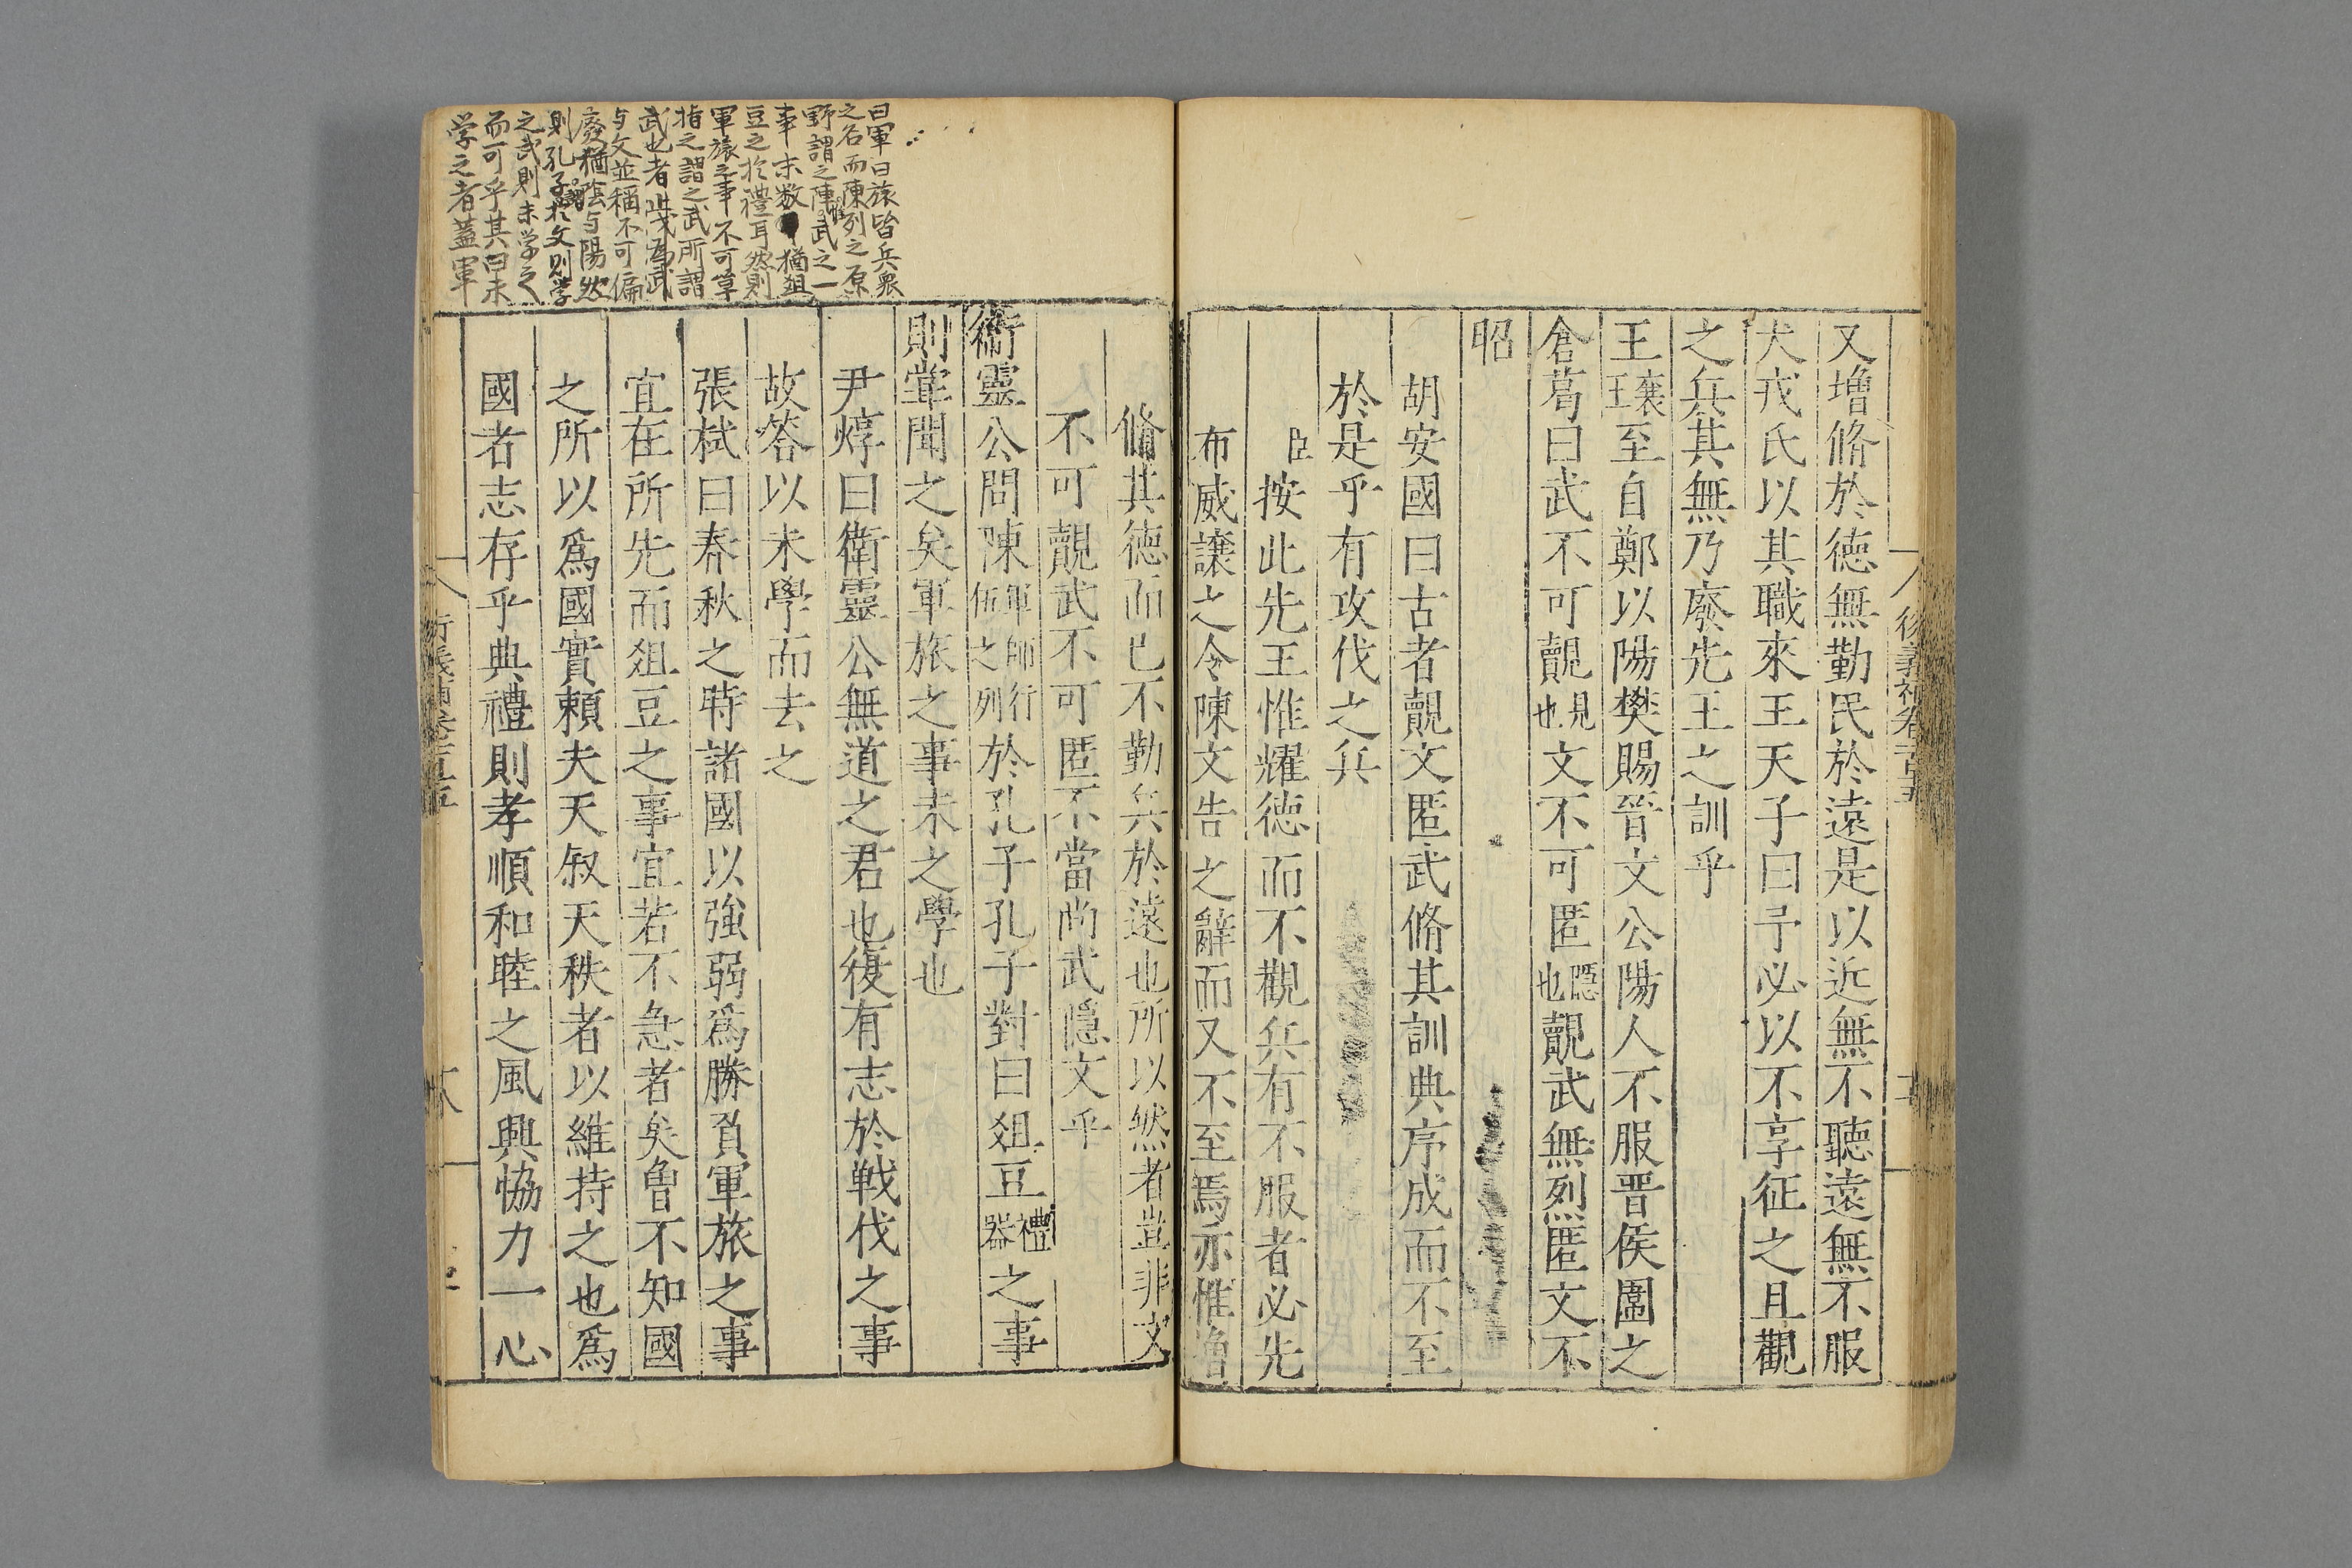 又增脩於德無勤民於遠是以近無不聽遠無不服
犬戎氏以其職來王天子曰予必以不享征之且觀
之兵其無乃廢先王之訓乎
王襄王至自鄭以陽樊賜晉文公陽人不服晉侯圍之
倉葛曰武不可覿見也文不可匿隱也覿武無烈匿文不
昭
胡安國曰古者覿文匿武脩其訓典序成而不至
於是乎有攻伐之兵
臣按此先王惟耀德而不觀兵有不服者必先
布威讓之令陳文告之辭而又不至焉亦惟增
脩其德而已不勤兵於遠也所以然者豈非文
不可覿武不可匿不當尚武隱文乎
衞靈公問陳軍師行伍之列於孔子孔子對曰俎豆禮器之事
則甞聞之矣軍旅之事未之學也
尹焞曰衛靈公無道之君也復有志於戰伐之事
故答以未學而去之
張栻曰春秋之時諸國以強弱爲勝負軍旅之事
宜在所先而俎豆之事宜若不急者矣曾不知國
之所以爲國實賴夫天叙天秩者以維持之也爲
國者志存乎典禮則孝順和睦之風興恊力一心
曰軍曰旅皆兵衆
之名而陳列之原
野謂之陣武之一
事末数猶俎
豆之於禮耳然則
軍旅之事不可草
指之謂之武所謂
武也者戈為武
与文並稱不可偏
廢猶陰与陽然
則孔子於文則学
之武則未学之
而可乎其曰未
学之者蓋軍